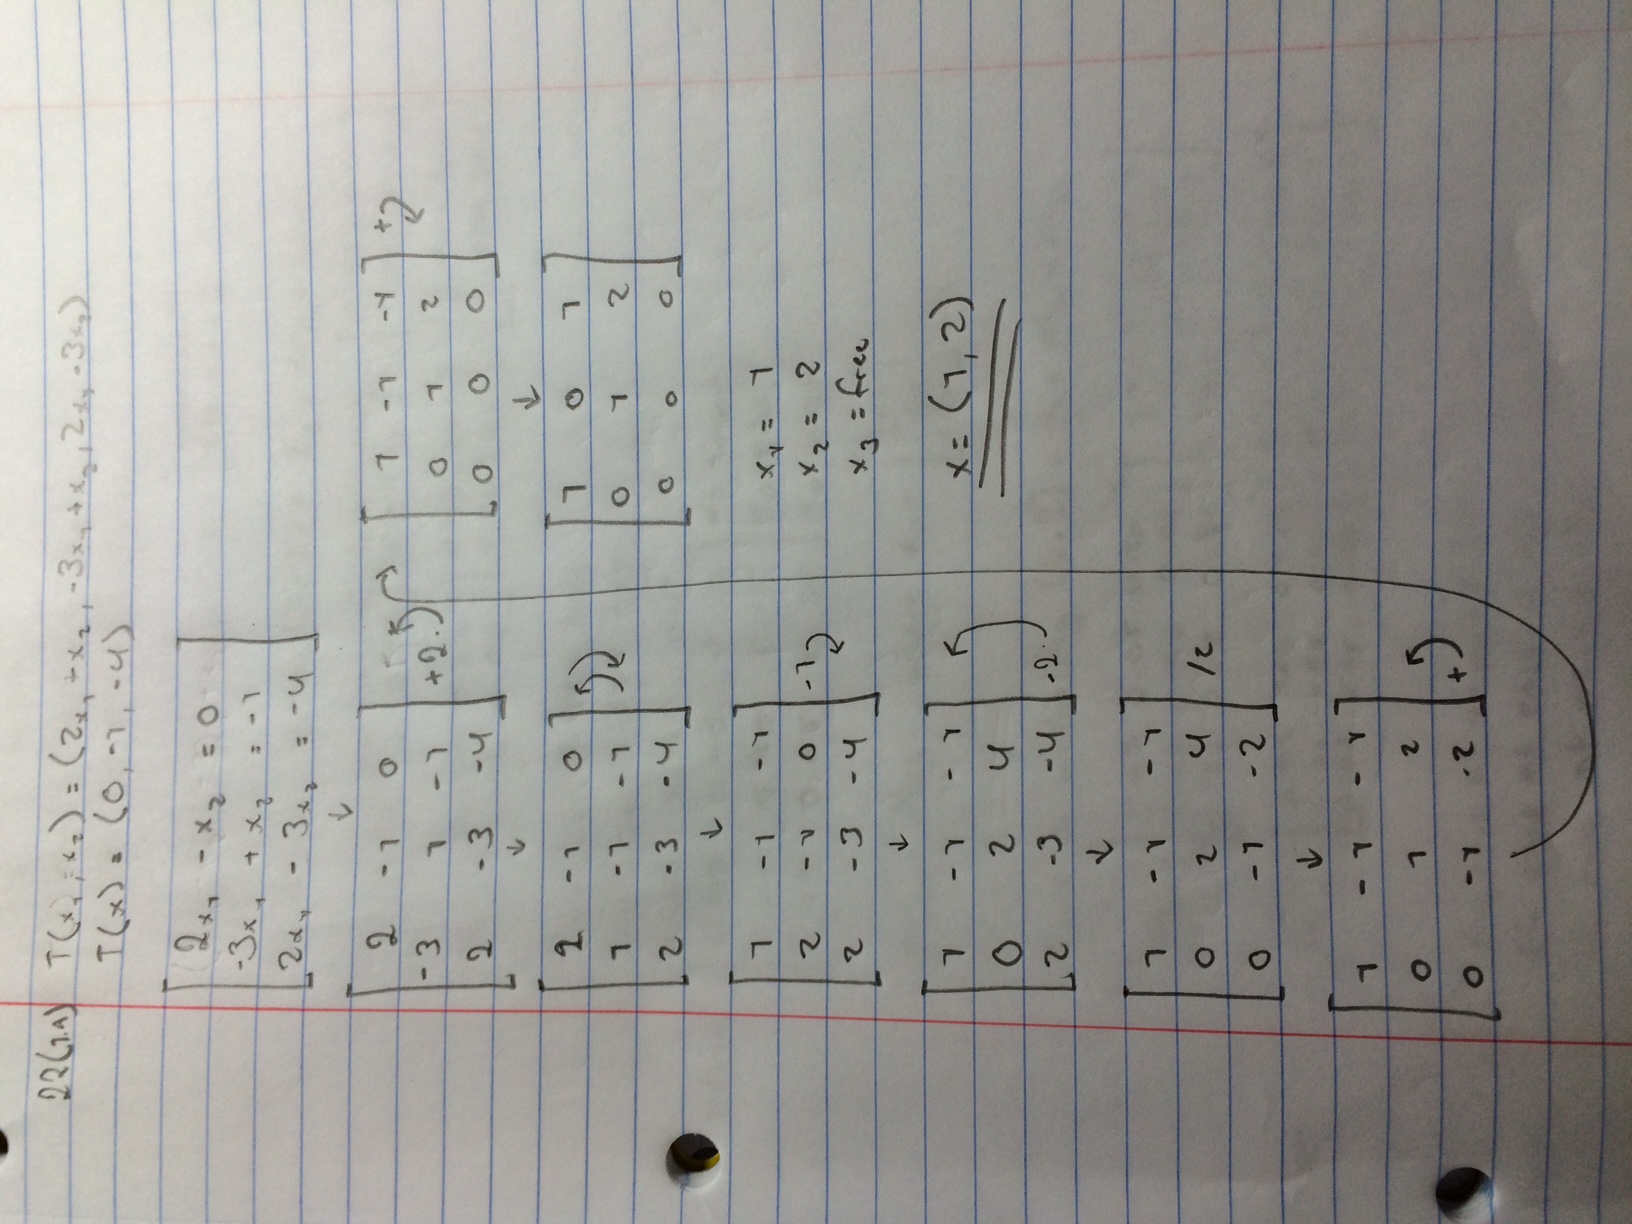 22(1.9) T(x₁, x₂) = (2x₁ - x₂, -3x₁ + x₂, 2x₁ - 3x₂)
T(x) = (0, -1, -4)
2x₁ - x₂ = 0
-3x₁ + x₂ = -1
2x₁ - 3x₂ = -4
↓
2 -1 0
-3 1 -1 +2·
2 -3 -4
↓
2 -1 0
1 -1 -1
2 -3 -4
↓
1 -1 -1
2 -1 0 -1
2 -3 -4
↓
1 -1 -1
0 2 4
2 -3 -4 -2·
↓
1 -1 -1
0 2 4 /2
0 -1 -2
↓
1 -1 -1
0 1 2
0 -1 -2 +
1 -1 -1 +
0 1 2
0 0 0
↓
1 0 1
0 1 2
0 0 0
x₁ = 1
x₂ = 2
x₃ = free
x = (1, 2)